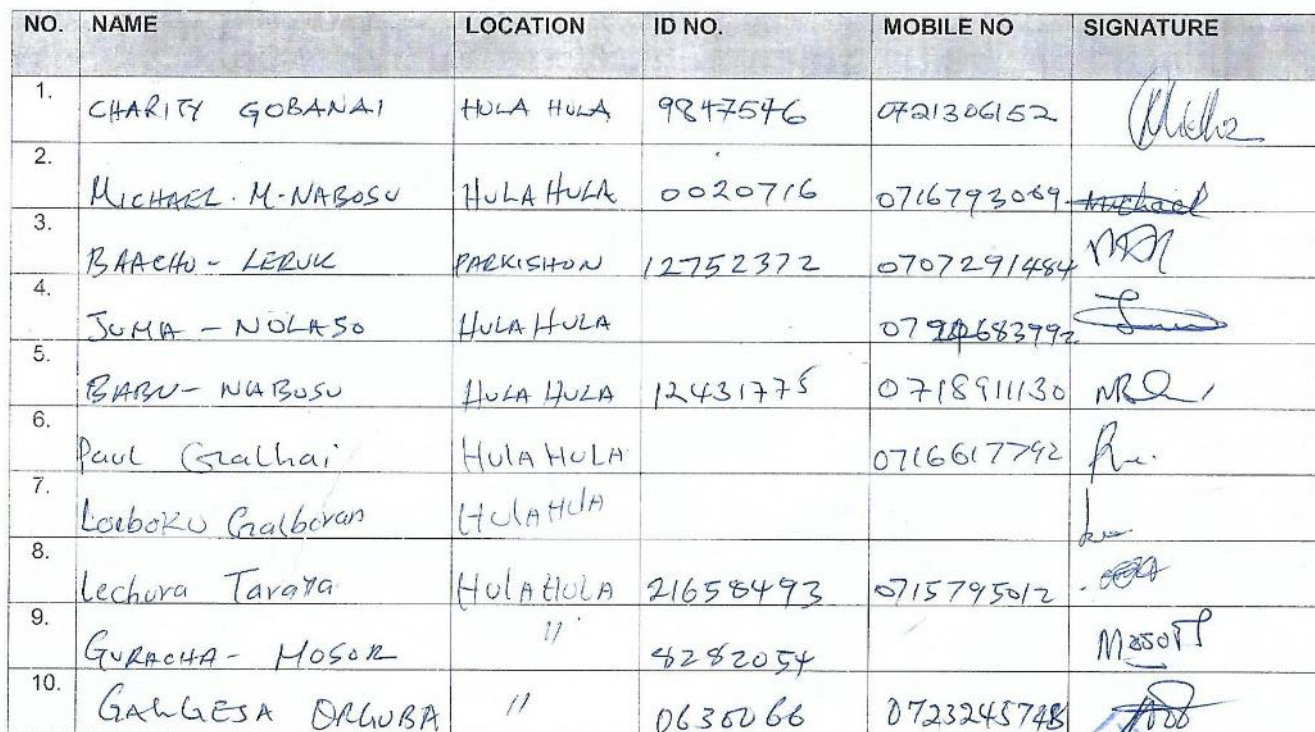 NO. NAME LOCATION ID NO. MOBILE NO SIGNATURE
1. CHARITY GOBANAI HULA HULA 9847546 0721306152
2. MICHAEL. M-NABOSU HULA HULA 0020716 0716793009 Michael
3. BAACHO - LERUK PARKISHON 12752372 0707291484
4. JUMA - NOLASO HULA HULA
5. BABU - NABOSU HULA HULA 12431775 0718911130
6. Paul Galhai HULA HULA 0716617792
7. Loeboku Galboran HULA HULA
8. Lechura Taraya HULA HULA 21658493 0715795012
9. GURACHA - MOSOR 11 8282054
10. GALGESA ORGUBA 11 0630066